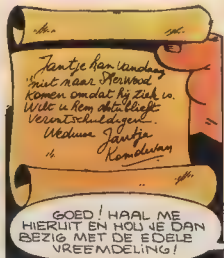 Jantje kan vandaag
niet naar Sherwood
komen omdat hij ziek is.
Wilt u hem
verontschuldigen.
Weduwe Jantje
GOED! HAAL ME
HIERUIT EN HOU JE DAN
BEZIG MET DE EDELE
VREEMDELING!